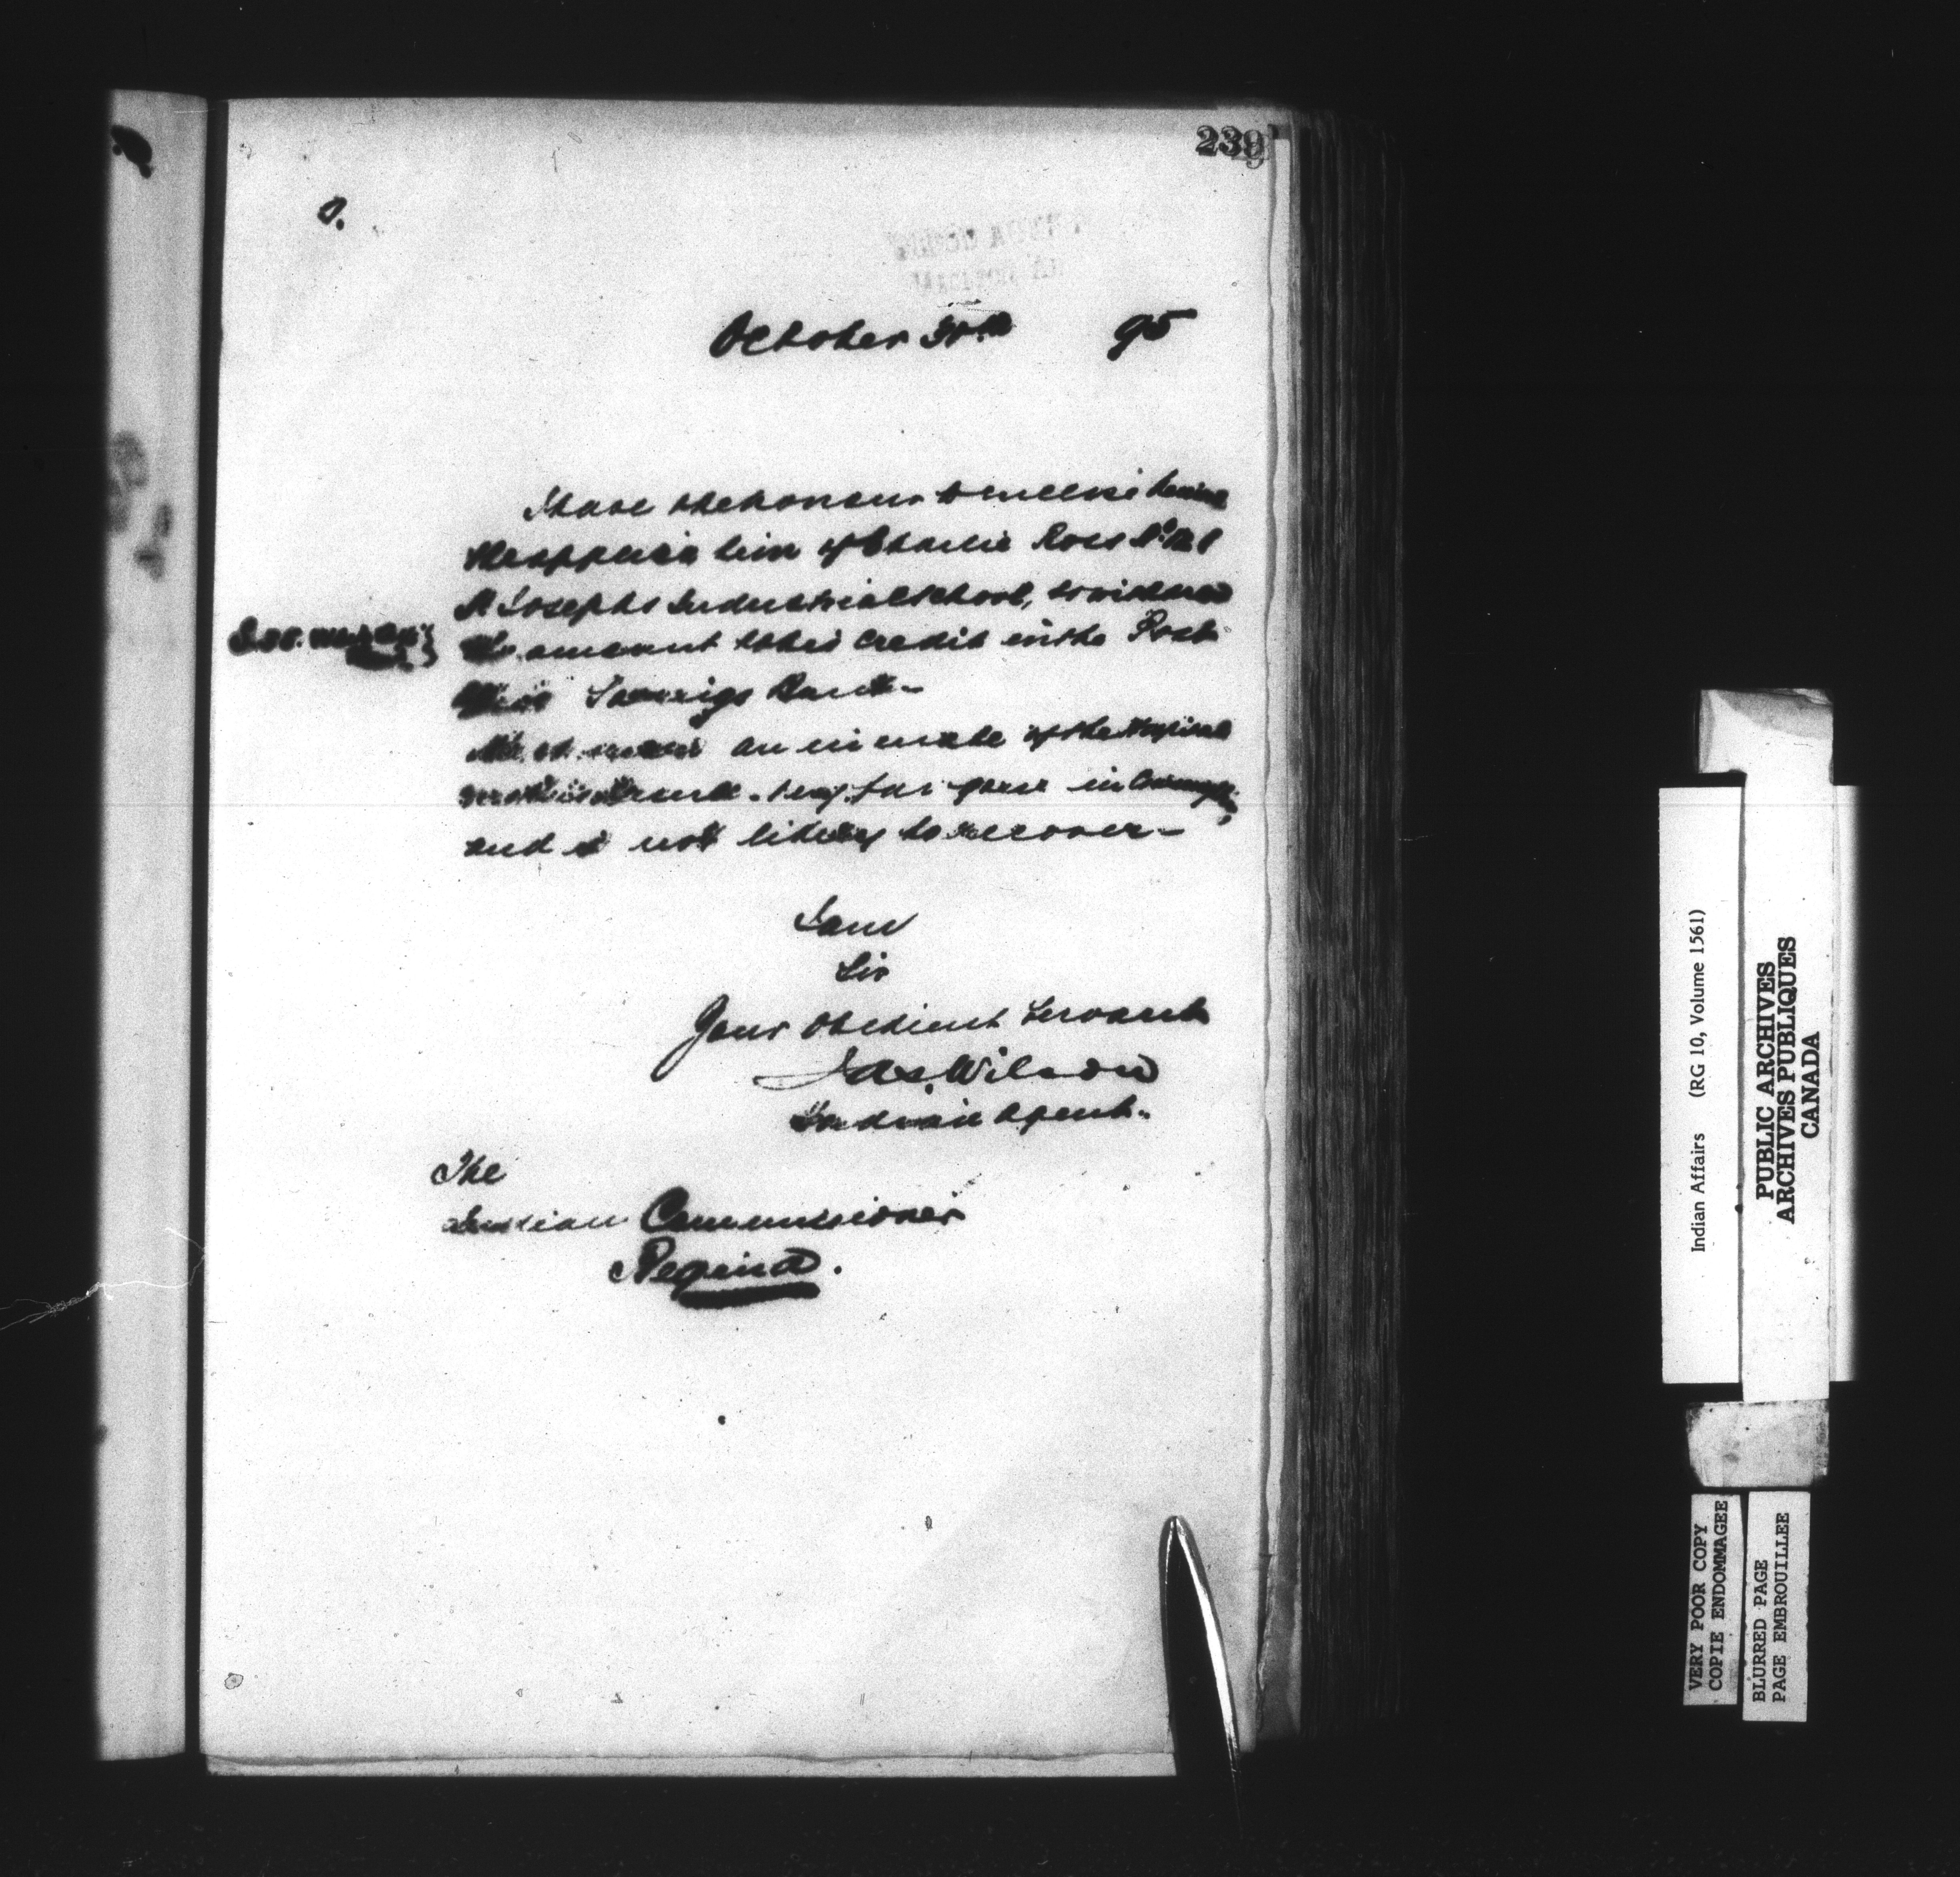 239
October 30th 95
I have the honour to enclose herewith
the application of Charlie Ross No 121
St Josephs Industrial School, to withdraw
the amount to his credit in the Post
Office Savings Bank-
an inmate of the Hospital
far gone in
and is not likely to recover-
I am
Sir
Your Obedient Servant
Jas. Wilson
Indian Agent.
The
Indian Commissioner
Regina.
Indian Affairs (RG 10, Volume 1561)
PUBLIC ARCHIVES
ARCHIVES PUBLIQUES
CANADA
VERY POOR COPY
COPIE ENDOMMAGEE
BLURRED PAGE
PAGE EMBROUILLEE